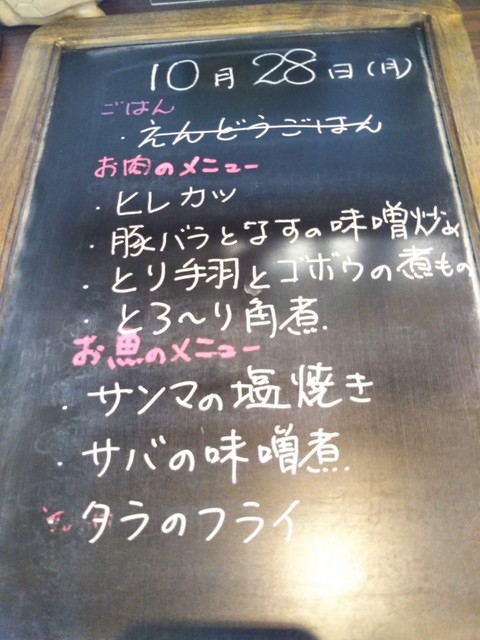 10月28日(月)
ごはん
・えんどうごはん
お肉のメニュー
・ヒレカツ
・豚バラとなすの味噌炒め
・とり手羽とゴボウの煮もの
・とろ〜り角煮
お魚のメニュー
・サンマの塩焼き
・サバの味噌煮
・タラのフライ